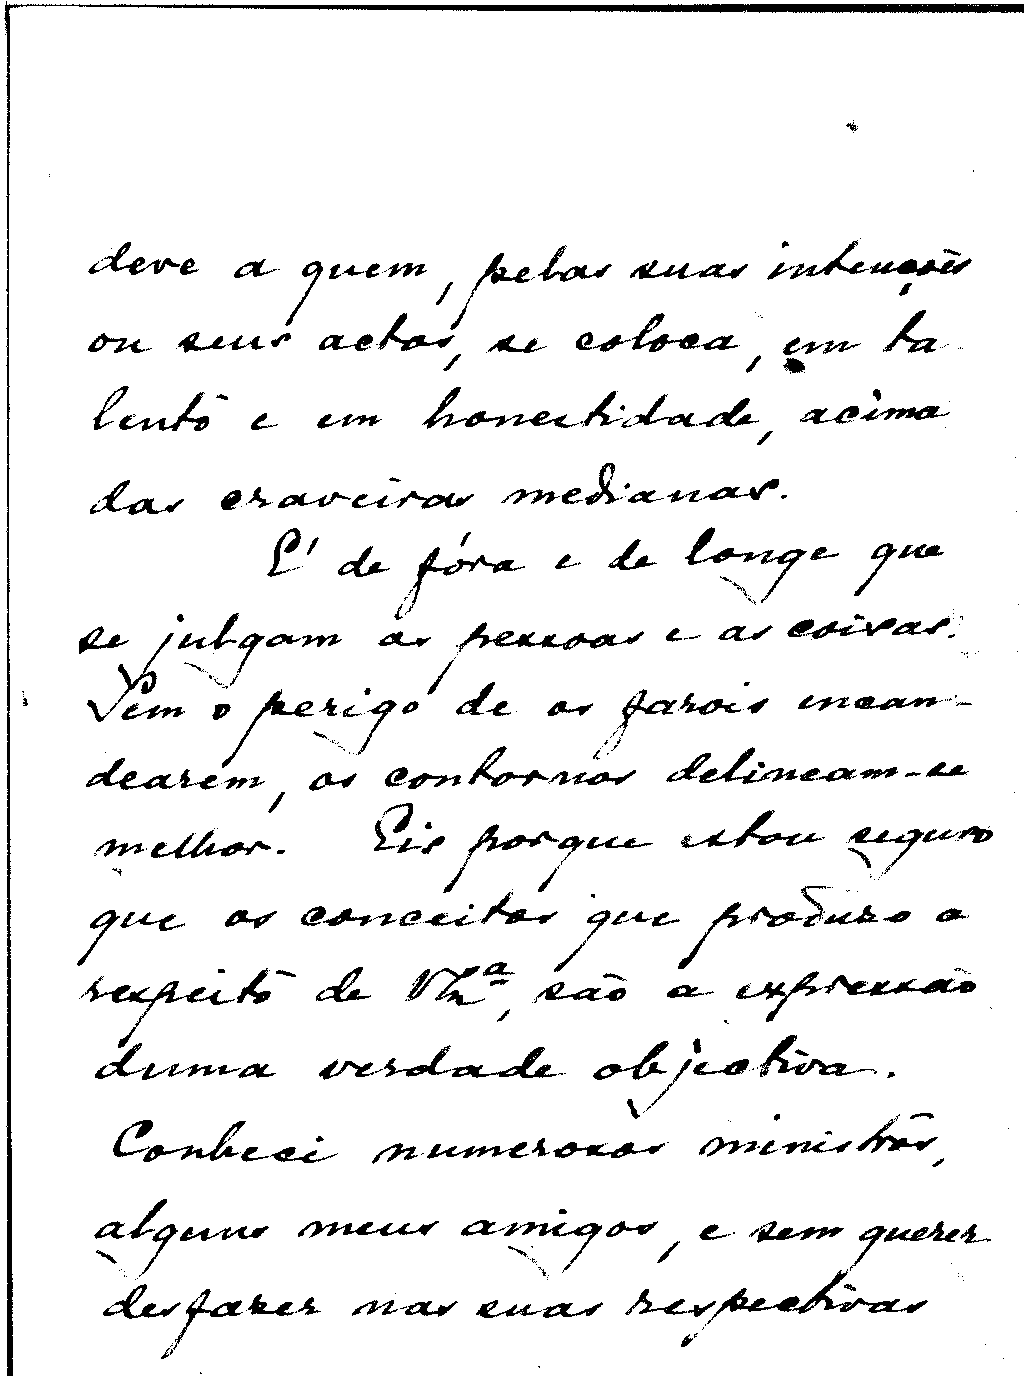 deve a quem, pelas suas intenções
ou seus actos, se coloca, em ta
lento e em honestidade, acima
das craveiras medianas.
E' de fóra e de longe que
se julgam as pessoas e as coisas.
Sem o perigo de os farois encan-
dearem, os contornos delineam-se
melhor. Eis porque estou seguro
que os conceitos que produzo a
respeito de V. Ex.ª, são a expressão
duma verdade objectiva.
Conheci numerosos ministros,
alguns meus amigos, e sem querer
desfazer nas suas respectivas